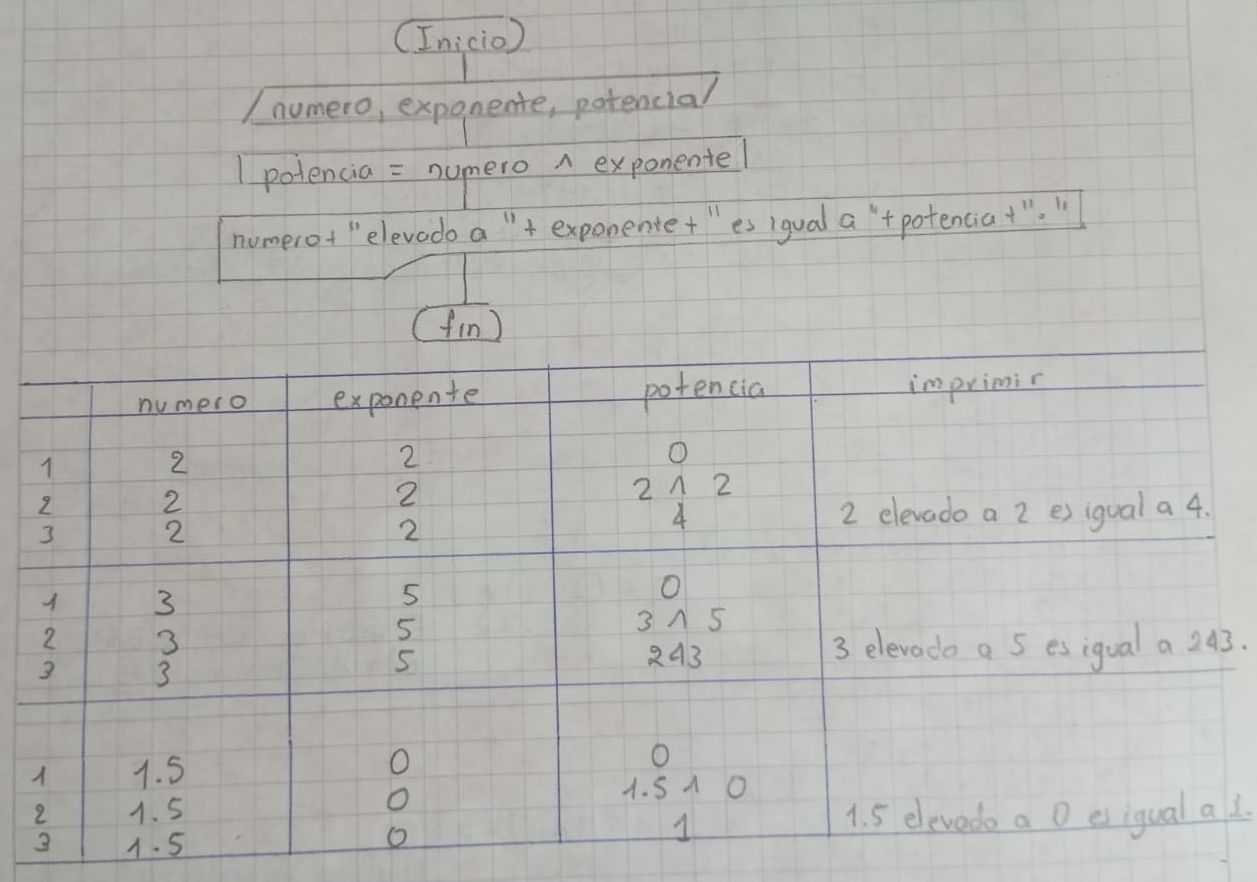 (Inicio)
/numero, exponente, potencia/
| potencia = numero ^ exponente |
numero + "elevado a " + exponente + " es igual a " + potencia + "."
(fin)
numero exponente potencia imprimir
1 2 2 0
2 2 2 2 ^ 2
3 2 2 4 2 elevado a 2 es igual a 4.
1 3 5 0
2 3 5 3 ^ 5
3 3 5 243 3 elevado a 5 es igual a 243.
1 1.5 0 0
2 1.5 0 1.5 ^ 0
3 1.5 0 1 1.5 elevado a 0 es igual a 1.